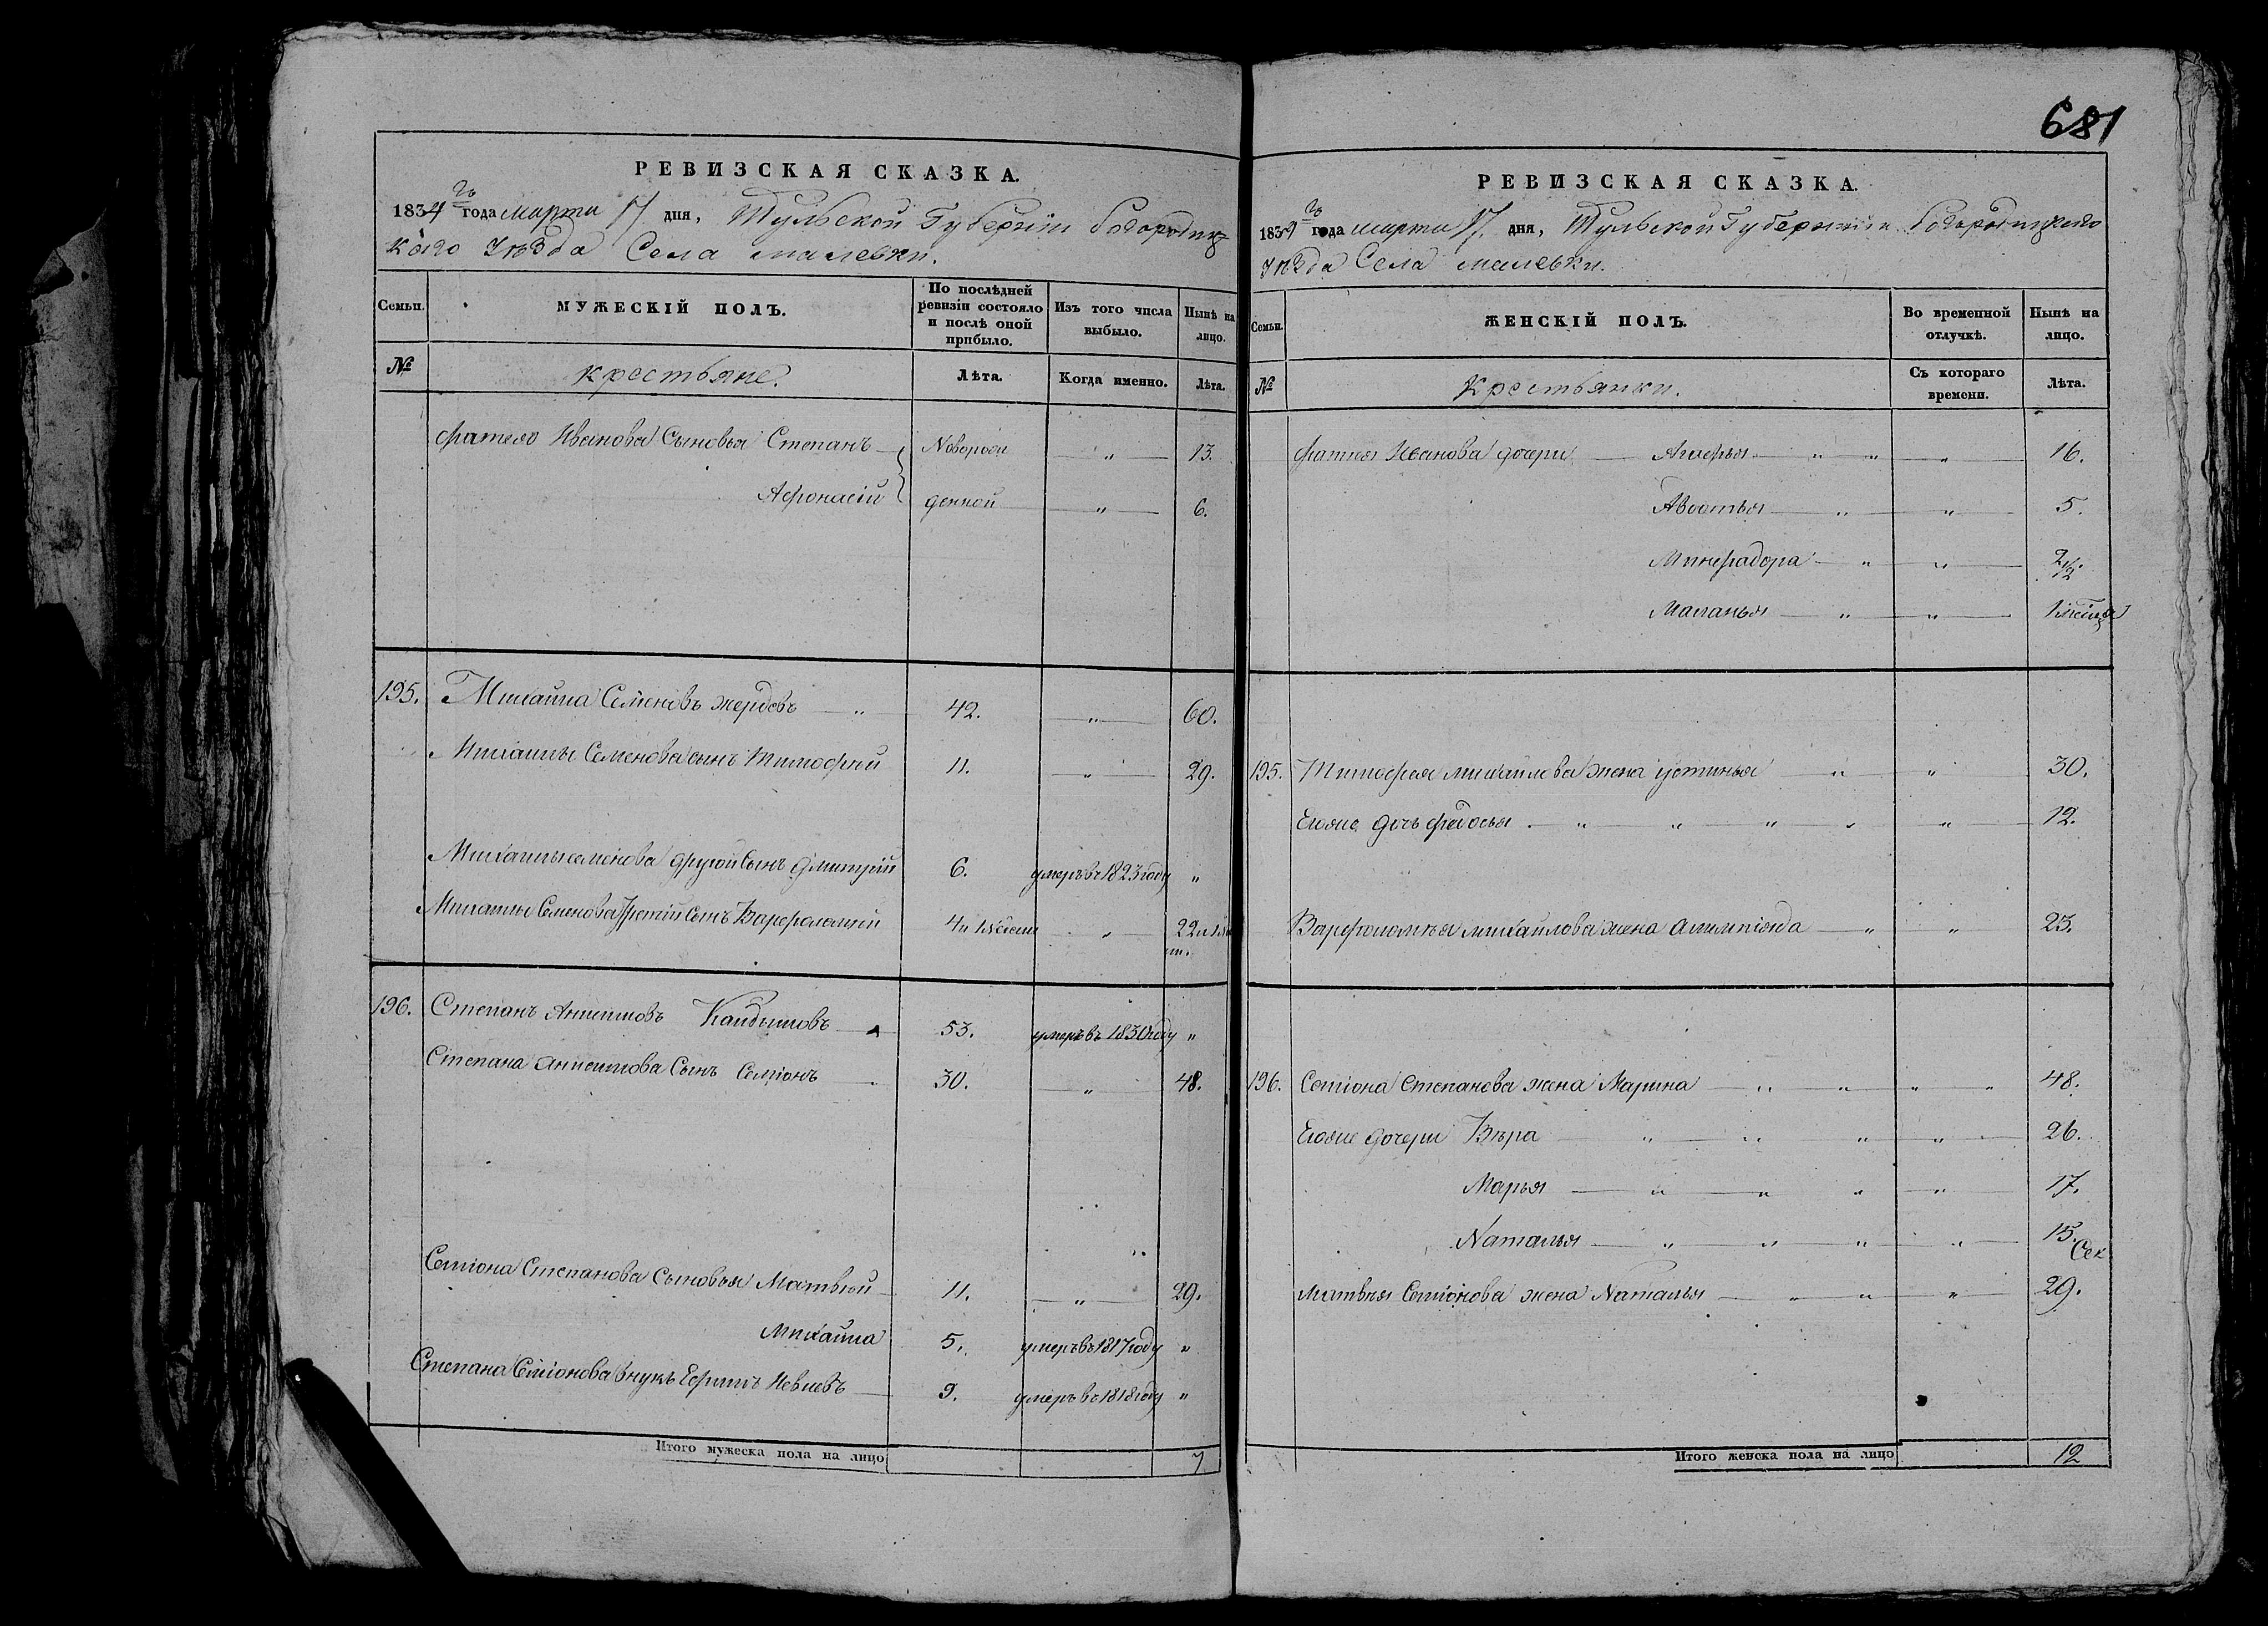 681
РЕВИЗСКАЯ СКАЗКА.
1834 го года марта 17 дня, Тульской Губернiи Богородиц
каго Уѣзда Села малевки.
Семьи. МУЖЕСКIЙ ПОЛЪ. По послѣдней ревизiи состояло и послѣ оной прибыло. Изъ того числа выбыло. Нынѣ на лицо.
№ крестьяне. Лѣта. Когда именно. Лѣта.
фатея Иванова Сыновья Степанъ Новорож 〃 13.
Афонасiй денной 〃 6.
195. Михайла Семеновъ жердовъ 〃 42. 〃 60.
Михайлы Семенова сынъ Тимофей 11. 〃 29.
Михайлы семенова другой Сынъ дмитрiй 6. умеръ въ 1823 году 〃
Михайлы Семенова третiй Сынъ Варфоломей 4 и 〃 22 и
196. Степанъ Анисимовъ Кандышовъ 53. умеръ въ 1830 году 〃
Степана анисимова Сынъ Семiонъ 30. 〃 48.
Семiона Степанова Сыновья Матвѣй 11. 〃 29.
Михайла 5. умеръ въ 1817 году 〃
Степана внукъ Ефимъ 9. умеръ въ 1818 году 〃
Итого мужеска пола на лицо 7
РЕВИЗСКАЯ СКАЗКА.
1834 го года марта 17. дня, Тульской Губернiи Богородицкаго
Уѣзда Села малевки.
Семьи. ЖЕНСКIЙ ПОЛЪ. Во временной отлучкѣ. Нынѣ на лицо.
№ Крестьянки. Съ котораго времени. Лѣта.
фатея Иванова дочери 〃 〃 〃 16.
Авдотья 〃 〃 5.
Минефадора 〃 〃 2 1/2.
Маланья 〃 〃 1 месяца
195. Тимофея михайлова жена устинья 〃 〃 30.
Ехоже дочь федосья 〃 〃 〃 〃 〃 12.
Варфоломея михайлова жена алимпiяда 〃 〃 23.
196. Семiона Степанова жена Марина 〃 〃 〃 〃 48.
Ехоже дочери Вѣра 〃 〃 〃 〃 26.
Марья 〃 〃 〃 〃 17.
Наталья 〃 〃 〃 〃 15.
Матвѣя Семiонова жена Наталья 〃 〃 〃 29.
Итого женска пола на лицо 12